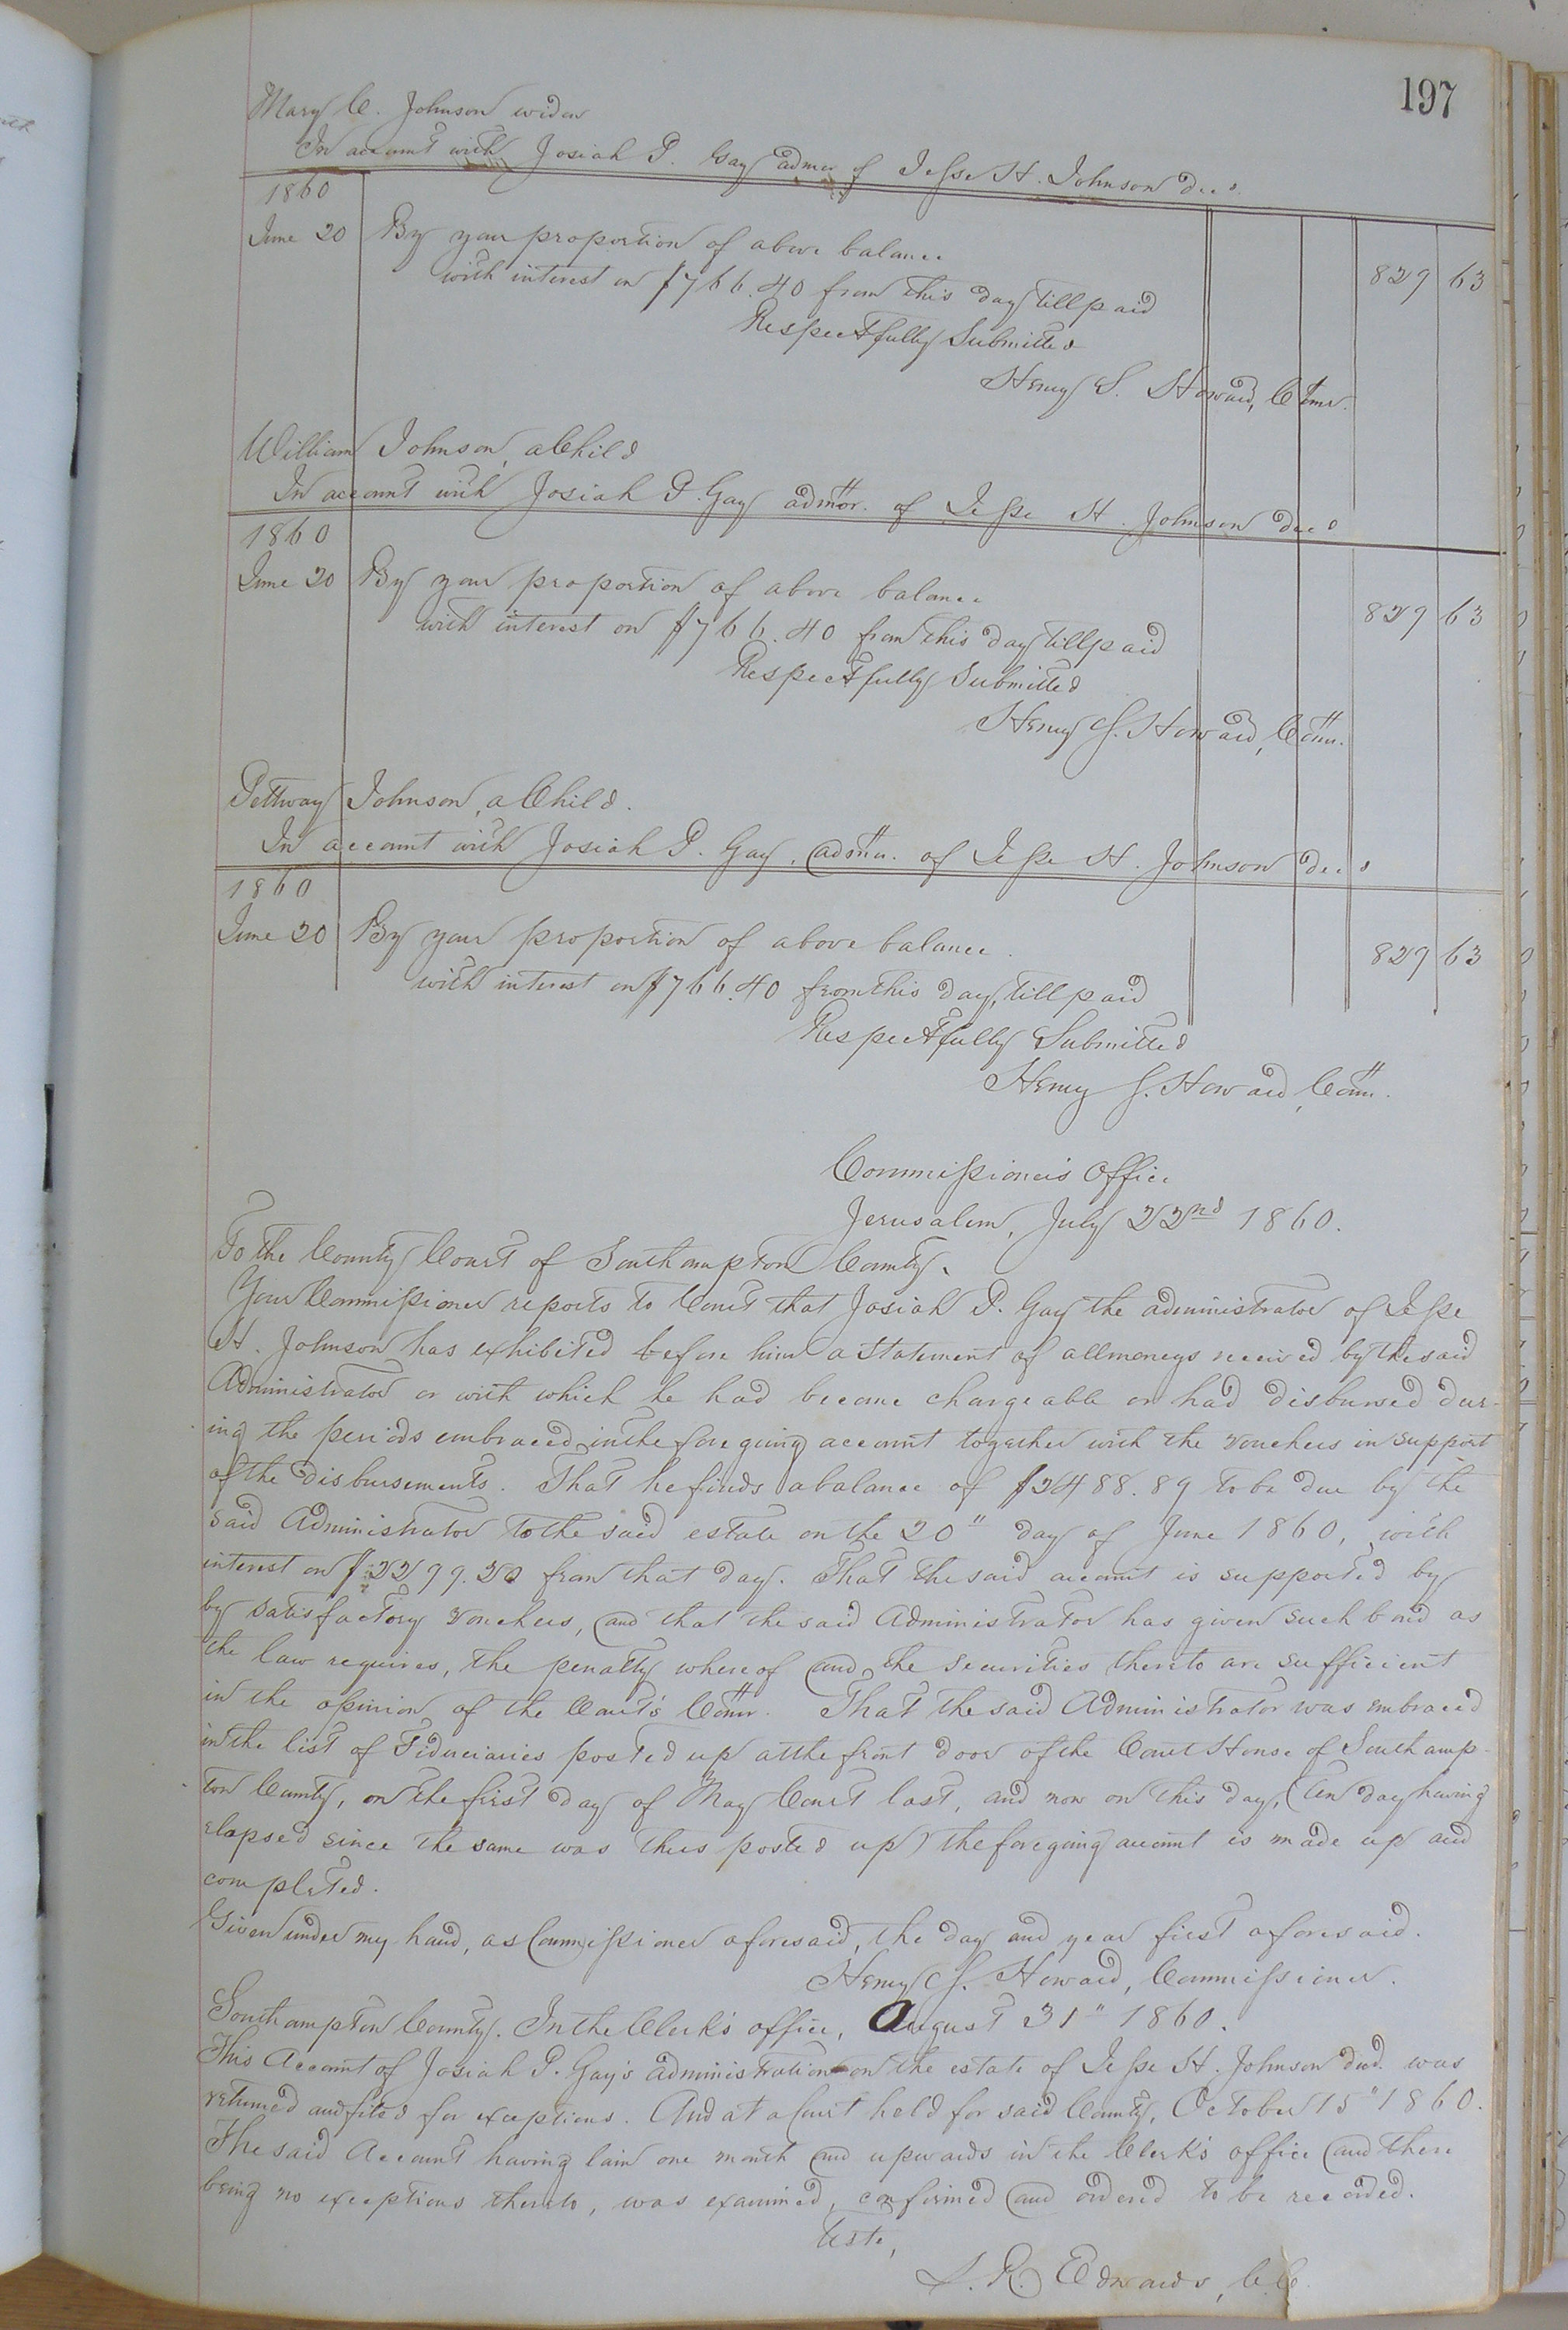 197
Mary C. Johnson widow
In account with Josiah P. Gay admr of Jesse H. Johnson decd.
1860
June 20 By your proportion of above balance 829 63
with interest on $766.40 from this day till paid
Respectfully Submitted
Henry S. Howard, Comr.
William Johnson, a Child
In account with Josiah P. Gay admor. of Jesse H. Johnson decd
1860
June 20 By your proportion of above balance 829 63
with interest on $766.40 from this day till paid
Respectfully Submitted
Henry S. Howard, Comr.
Pettway Johnson, a Child.
In account with Josiah P. Gay, admr. of Jesse H. Johnson decd
1860
June 20 By your proportion of above balance. 829 63
with interest on $766.40 from this day, till paid
Respectfully Submitted
Henry S. Howard, Comr.
Commissioner's Office
Jerusalem, July 22nd 1860.
To the County Court of Southampton County.
Your Commissioner reports to Court that Josiah P. Gay the administrator of Jesse
H. Johnson has exhibited before him a Statement of all moneys received by the said
Administrator or with which he had become chargeable or had disbursed dur-
ing the periods embraced in the foregoing account together with the vouchers in support
of the disbursements. That he finds a balance of $2488.89 to be due by the
said Administrator to the said estate on the 20" day of June 1860, with
interest on $2299.20 from that day. That the said account is supported by
by satisfactory vouchers, and that the said Administrator has given such bond as
the law requires, the penalty whereof and the securities thereto are sufficient
in the opinion of the Court's Comr. That the said Administrator was embraced
in the list of Fiduciaries posted up at the front door of the Court House of Southamp-
ton County, on the first day of May Court last, and now on this day, (ten day having
elapsed since the same was thus posted up) the foregoing account is made up and
completed.
Given under my hand, as Commissioner aforesaid, the day and year first aforesaid.
Henry S. Howard, Commissioner.
Southampton County. In the Clerk's office, August 31" 1860.
This Account of Josiah P. Gay's administration on the estate of Jesse H. Johnson decd. was
returned and filed for exceptions. And at a Court held for said County, October 15" 1860.
The said Account having lain one month and upwards in the Clerk's office and there
being no exceptions thereto, was examined, confirmed and ordered to be recorded.
Teste,
L. R. Edwards, C.C.